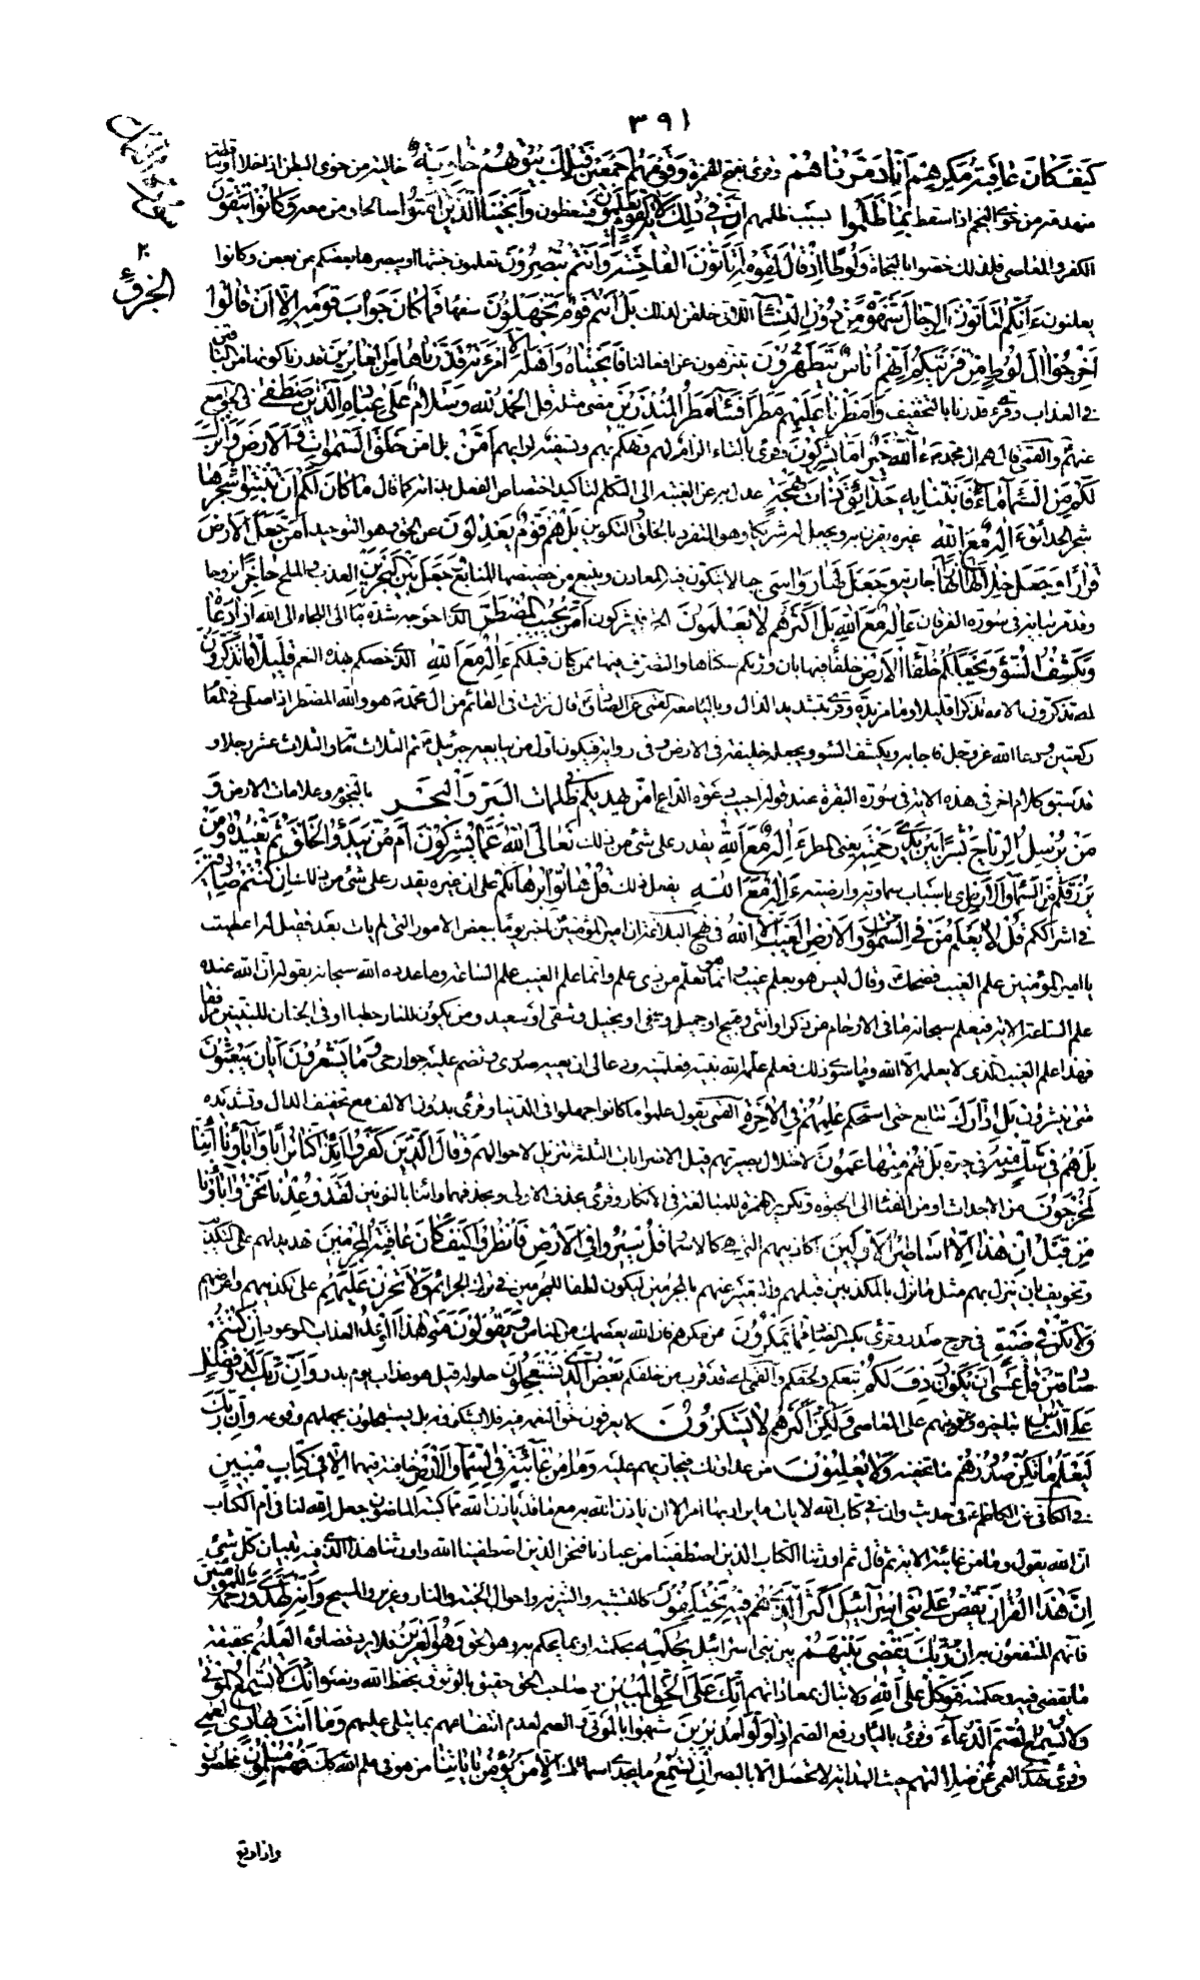 ٣٩١
كَيْفَ كَانَ عَاقِبَةُ مَكْرِهِمْ أَنَّا دَمَّرْنَاهُمْ وقرئ بفتح الهمزة وَقَوْمَهُمْ أَجْمَعِينَ فَتِلْكَ بُيُوتُهُمْ خَاوِيَةً خالية من خوى البطن اذا خلا او ساقطة
منهدمة من خوى النجم اذا سقط بِمَا ظَلَمُوا بسبب ظلمهم إِنَّ فِي ذٰلِكَ لَآيَةً لِقَوْمٍ يَعْلَمُونَ فيتعظون وَأَنْجَيْنَا الَّذِينَ آمَنُوا صالحا ومن معه وَكَانُوا يَتَّقُونَ
الكفر والمعاصى فلذلك خصوا بالنجاة وَلُوطًا إِذْ قَالَ لِقَوْمِهِ أَتَأْتُونَ الْفَاحِشَةَ وَأَنْتُمْ تُبْصِرُونَ تعلمون خبثها او يبصرها بعضكم من بعض وكانوا
يعلنون ءَأَئِنَّكُمْ لَتَأْتُونَ الرِّجَالَ شَهْوَةً مِنْ دُونِ النِّسَاءِ اللاتى خلقن لذلك بَلْ أَنْتُمْ قَوْمٌ تَجْهَلُونَ سفها فَمَا كَانَ جَوَابَ قَوْمِهِ إِلَّا أَنْ قَالُوا
أَخْرِجُوا آلَ لُوطٍ مِنْ قَرْيَتِكُمْ إِنَّهُمْ أُنَاسٌ يَتَطَهَّرُونَ يتنزهون عن افعالنا فَأَنْجَيْنَاهُ وَأَهْلَهُ إِلَّا امْرَأَتَهُ قَدَّرْنَاهَا مِنَ الْغَابِرِينَ قدرنا كونها من الباقين
فى العذاب وقرئ قدرنا بالتخفيف وَأَمْطَرْنَا عَلَيْهِمْ مَطَرًا فَسَاءَ مَطَرُ الْمُنْذَرِينَ مضى مثله قُلِ الْحَمْدُ لِلّٰهِ وَسَلَامٌ عَلَى عِبَادِهِ الَّذِينَ اصْطَفَى فى الجوامع
عنهم والقمى قال هم ال محمد ءَاللّٰهُ خَيْرٌ أَمَّا يُشْرِكُونَ وقرئ بالتاء الزام لهم وتهكم بهم وتسفيه لرايهم أَمَّنْ بل امن خَلَقَ السَّمٰوَاتِ وَالْأَرْضَ وَأَنْزَلَ
لَكُمْ مِنَ السَّمَاءِ مَاءً فَأَنْبَتْنَا بِهِ حَدَائِقَ ذَاتَ بَهْجَةٍ عدل به عن الغيبة الى التكلم لتاكيد اختصاص الفعل بذاته كما قال مَا كَانَ لَكُمْ أَنْ تُنْبِتُوا شَجَرَهَا
شجر الحدائق ءَإِلٰهٌ مَعَ اللّٰهِ غيره يقرن به ويجعل له شريكا وهو المتفرد بالخلق والتكوين بَلْ هُمْ قَوْمٌ يَعْدِلُونَ عن الحق وهو التوحيد أَمَّنْ جَعَلَ الْأَرْضَ
قَرَارًا وَجَعَلَ خِلَالَهَا أَنْهَارًا جارية وَجَعَلَ لَهَا رَوَاسِيَ جبالا يتكون فيها المعادن وينبع من حضيضها المنابع وَجَعَلَ بَيْنَ الْبَحْرَيْنِ العذب والملح حَاجِزًا برزخا
وقد مر بيانه فى سورة الفرقان ءَإِلٰهٌ مَعَ اللّٰهِ بَلْ أَكْثَرُهُمْ لَا يَعْلَمُونَ الحق فيشركون أَمَّنْ يُجِيبُ الْمُضْطَرَّ الذى احوجه شدة ما به الى اللجاء الى الله إِذَا دَعَاهُ
وَيَكْشِفُ السُّوءَ وَيَجْعَلُكُمْ خُلَفَاءَ الْأَرْضِ خلفاء فيها بان ورثكم سكناها والتصرف فيها ممن كان قبلكم ءَإِلٰهٌ مَعَ اللّٰهِ الذى خصكم بهذه النعم قَلِيلًا مَا تَذَكَّرُونَ
قد سبق كلام اخر فى هذه الاية فى سورة البقرة عند قوله اجيب دعوة الداع أَمَّنْ يَهْدِيكُمْ فِي ظُلُمَاتِ الْبَرِّ وَالْبَحْرِ بالنجوم وعلامات الارض وَ
مَنْ يُرْسِلُ الرِّيَاحَ بُشْرًا بَيْنَ يَدَيْ رَحْمَتِهِ يعنى المطر ءَإِلٰهٌ مَعَ اللّٰهِ يقدر على شئ من ذلك تَعَالَى اللّٰهُ عَمَّا يُشْرِكُونَ أَمَّنْ يَبْدَؤُا الْخَلْقَ ثُمَّ يُعِيدُهُ وَمَنْ
يَرْزُقُكُمْ مِنَ السَّمَاءِ وَالْأَرْضِ اى باسباب سماوية وارضية ءَإِلٰهٌ مَعَ اللّٰهِ يفعل ذلك قُلْ هَاتُوا بُرْهَانَكُمْ على ان غيره يقدر على شئ من ذلك إِنْ كُنْتُمْ صَادِقِينَ
فى اشراككم قُلْ لَا يَعْلَمُ مَنْ فِي السَّمٰوَاتِ وَالْأَرْضِ الْغَيْبَ إِلَّا اللّٰهُ فى نهج البلاغة ان امير المؤمنين اخبر يوما ببعض الامور التى لم يات بعد فقيل له اعطيت
يا امير المؤمنين علم الغيب فضحك وقال ليس هو بعلم غيب وانما هو تعلم من ذى علم وانما علم الغيب علم الساعة وما عدده الله سبحانه بقوله ان الله عنده
علم الساعة الاية فيعلم سبحانه ما فى الارحام من ذكر او انثى وقبيح او جميل وسخى او بخيل وشقى او سعيد ومن يكون للنار حطبا او فى الجنان للنبيين مرافقا
فهذا علم الغيب الذى لا يعلمه الا الله وما سوى ذلك فعلم علمه الله نبيه فعلمنيه ودعا لى ان يعيه صدرى وتضم عليه جوارحى وَمَا يَشْعُرُونَ أَيَّانَ يُبْعَثُونَ
متى ينشرون بَلِ ادَّارَكَ تتابع حتى استحكم عِلْمُهُمْ فِي الْآخِرَةِ القمى يقول علموا ما كانوا جهلوا فى الدنيا وقرئ بدون الالف مع تخفيف الدال وتشديده
بَلْ هُمْ فِي شَكٍّ مِنْهَا فى حيرة بَلْ هُمْ مِنْهَا عَمُونَ لاختلال بصيرتهم قيل الاضرابات الثلثة تنزيل لاحوالهم وَقَالَ الَّذِينَ كَفَرُوا أَئِذَا كُنَّا تُرَابًا وَآبَاؤُنَا أَئِنَّا
لَمُخْرَجُونَ من الاجداث او من الفناء الى الحيوة وتكرير الهمزة للمبالغة فى الانكار وقرئ بحذف الاولى وبحذفهما وائنا بالنونين لَقَدْ وُعِدْنَا هٰذَا نَحْنُ وَآبَاؤُنَا
مِنْ قَبْلُ إِنْ هٰذَا إِلَّا أَسَاطِيرُ الْأَوَّلِينَ اكاذيبهم التى هى كالاسمار قُلْ سِيرُوا فِي الْأَرْضِ فَانْظُرُوا كَيْفَ كَانَ عَاقِبَةُ الْمُجْرِمِينَ تهديد لهم على التكذيب
وتخويف بان ينزل بهم مثل ما نزل بالمكذبين قبلهم والتعبير عنهم بالمجرمين ليكون لطفا للمؤمنين فى ترك الجرائم وَلَا تَحْزَنْ عَلَيْهِمْ على تكذيبهم واعراضهم
وَلَا تَكُنْ فِي ضَيْقٍ فى حرج صدر وقرئ بكسر الضاد مِمَّا يَمْكُرُونَ من مكرهم فان الله يعصمك من الناس وَيَقُولُونَ مَتَى هٰذَا الْوَعْدُ العذاب الموعود إِنْ كُنْتُمْ
صَادِقِينَ قُلْ عَسَى أَنْ يَكُونَ رَدِفَ لَكُمْ تبعكم ولحقكم والقمى اى قد قرب من خلفكم بَعْضُ الَّذِي تَسْتَعْجِلُونَ حلوله قيل هو عذاب يوم بدر وَإِنَّ رَبَّكَ لَذُو فَضْلٍ
عَلَى النَّاسِ بتاخير عقوبتهم على المعاصى وَلٰكِنَّ أَكْثَرَهُمْ لَا يَشْكُرُونَ لا يعرفون حق النعمة فيه فلا يشكرونه بل يستعجلون بجهلهم وقوعه وَإِنَّ رَبَّكَ
لَيَعْلَمُ مَا تُكِنُّ صُدُورُهُمْ ما تخفيه وَمَا يُعْلِنُونَ من عداوتك فيجازيهم عليه وَمَا مِنْ غَائِبَةٍ فِي السَّمَاءِ وَالْأَرْضِ خافية فيهما إِلَّا فِي كِتَابٍ مُبِينٍ
فى الكافى عن الكاظم فى حديث وان فى كتاب الله لايات ما يراد بها امر الا ان ياذن الله به مع ما قد ياذن الله مما كتبه الماضون جعله الله لنا فى ام الكتاب
ان الله يقول وما من غائبة الاية ثم قال ثم اورثنا الكتاب الذين اصطفينا من عبادنا فنحن الذين اصطفينا الله واورثنا هذا الذى فيه تبيان كل شئ
إِنَّ هٰذَا الْقُرْآنَ يَقُصُّ عَلَى بَنِي إِسْرَائِيلَ أَكْثَرَ الَّذِي هُمْ فِيهِ يَخْتَلِفُونَ كالتشبيه والتنزيه واحوال الجنة والنار وعزير والمسيح وَإِنَّهُ لَهُدًى وَرَحْمَةٌ لِلْمُؤْمِنِينَ
فانهم المنتفعون به إِنَّ رَبَّكَ يَقْضِي بَيْنَهُمْ بين بنى اسرائيل بِحُكْمِهِ بحكمته او بما يحكم به وهو الحق وَهُوَ الْعَزِيزُ فلا يرد قضاؤه الْعَلِيمُ بحقيقة
ما يقضى فيه وحكمته فَتَوَكَّلْ عَلَى اللّٰهِ ولا تبال بمعاداتهم إِنَّكَ عَلَى الْحَقِّ الْمُبِينِ وصاحب الحق حقيق بالوثوق بحفظ الله ونصره إِنَّكَ لَا تُسْمِعُ الْمَوْتَى
وَلَا تُسْمِعُ الصُّمَّ الدُّعَاءَ وقرئ بالياء ورفع الصم إِذَا وَلَّوْا مُدْبِرِينَ شبهوا بالموتى والصم لعدم انتفاعهم بما يتلى عليهم وَمَا أَنْتَ بِهَادِي الْعُمْيِ
وقرئ تهدى العمى عَنْ ضَلَالَتِهِمْ حيث الهداية لا تحصل الا بالبصر إِنْ تُسْمِعُ ما يجدى اسماعك إِلَّا مَنْ يُؤْمِنُ بِآيَاتِنَا من هو فى علم الله كذلك فَهُمْ مُسْلِمُونَ مخلصون
واذا وقع